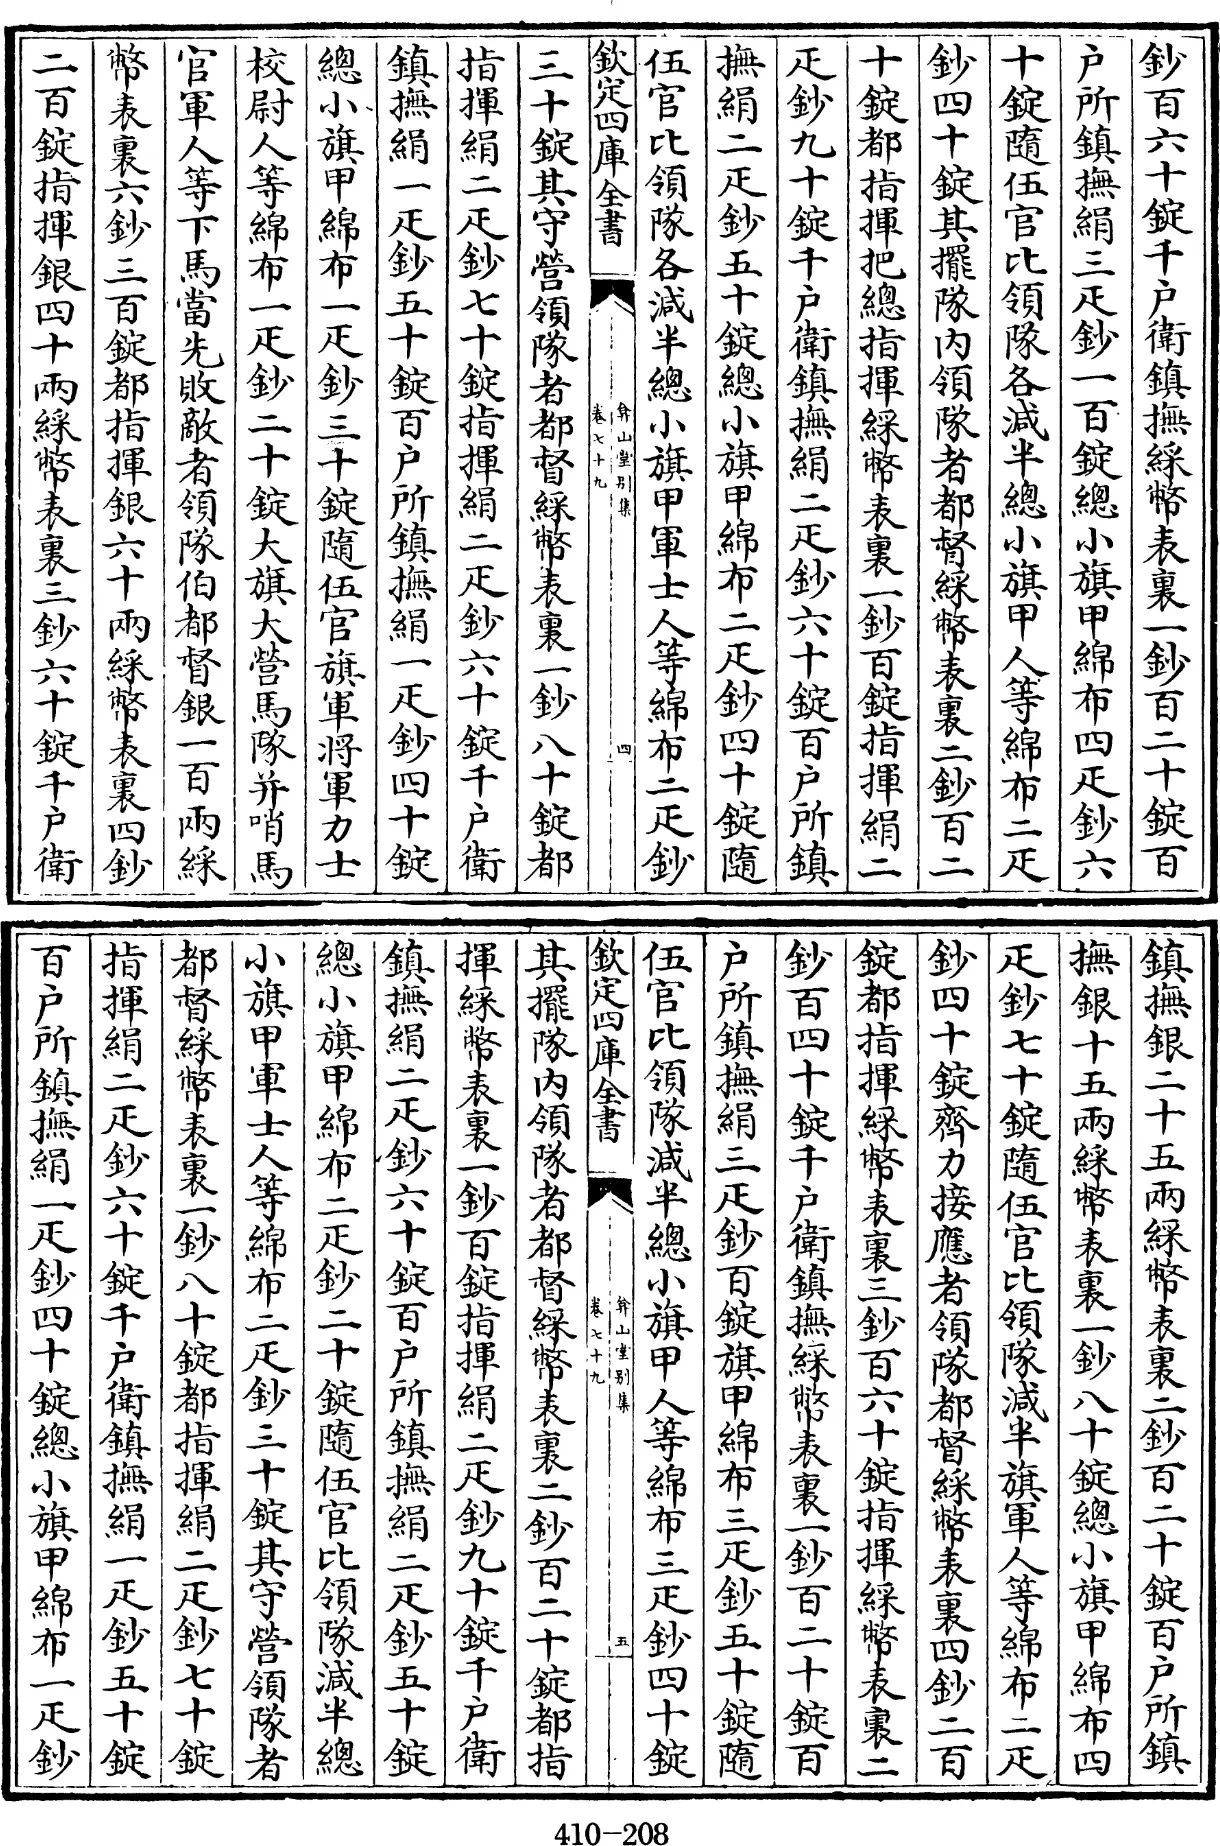 鈔百六十錠千户衛鎮撫綵幣表裏一鈔百二十錠百
户所鎮撫絹三疋鈔一百錠總小旗甲綿布四疋鈔六
十錠隨伍官比領隊各減半總小旗甲人等綿布二疋
鈔四十錠其擺隊内領隊者都督綵幣表裏二鈔百二
十錠都指揮把總指揮綵幣表裏一鈔百錠指揮絹二
疋鈔九十錠千户衛鎮撫絹二疋鈔六十錠百户所鎮
撫絹二疋鈔五十錠總小旗甲綿布二疋鈔四十錠隨
伍官比領隊各減半總小旗甲軍士人等綿布二疋鈔
欽定四庫全書
弇山堂别集
卷七十九
四
三十錠其守營領隊者都督綵幣表裏一鈔八十錠都
指揮絹二疋鈔七十錠指揮絹二疋鈔六十錠千户衛
鎮撫絹一疋鈔五十錠百户所鎮撫絹一疋鈔四十錠
總小旗甲綿布一疋鈔三十錠隨伍官旗軍將軍力士
校尉人等綿布一疋鈔二十錠大旗大營馬隊并哨馬
官軍人等下馬當先敗敵者領隊伯都督銀一百兩綵
幣表裏六鈔三百錠都指揮銀六十兩綵幣表裏四鈔
二百錠指揮銀四十兩綵幣表裏三鈔六十錠千户衛
鎮撫銀二十五兩綵幣表裏二鈔百二十錠百户所鎮
撫銀十五兩綵幣表裏一鈔八十錠總小旗甲綿布四
疋鈔七十錠隨伍官比領隊減半旗軍人等綿布二疋
鈔四十錠齊力接應者領隊都督綵幣表裏四鈔二百
錠都指揮綵幣表裏三鈔百六十錠指揮綵幣表裏二
鈔百四十錠千户衛鎮撫綵幣表裏一鈔百二十錠百
户所鎮撫絹三疋鈔百錠旗甲綿布三疋鈔五十錠隨
伍官比領隊減半總小旗甲人等綿布三疋鈔四十錠
欽定四庫全書
弇山堂别集
卷七十九
五
其擺隊内領隊者都督綵幣表裏二鈔百二十錠都指
揮綵幣表裏一鈔百錠指揮絹二疋鈔九十錠千户衛
鎮撫絹二疋鈔六十錠百户所鎮撫絹二疋鈔五十錠
總小旗甲綿布二疋鈔二十錠隨伍官比領隊減半總
小旗甲軍士人等綿布二疋鈔三十錠其守營領隊者
都督綵幣表裏一鈔八十錠都指揮絹二疋鈔七十錠
指揮絹二疋鈔六十錠千户衛鎮撫絹一疋鈔五十錠
百户所鎮撫絹一疋鈔四十錠總小旗甲綿布一疋鈔
410-208